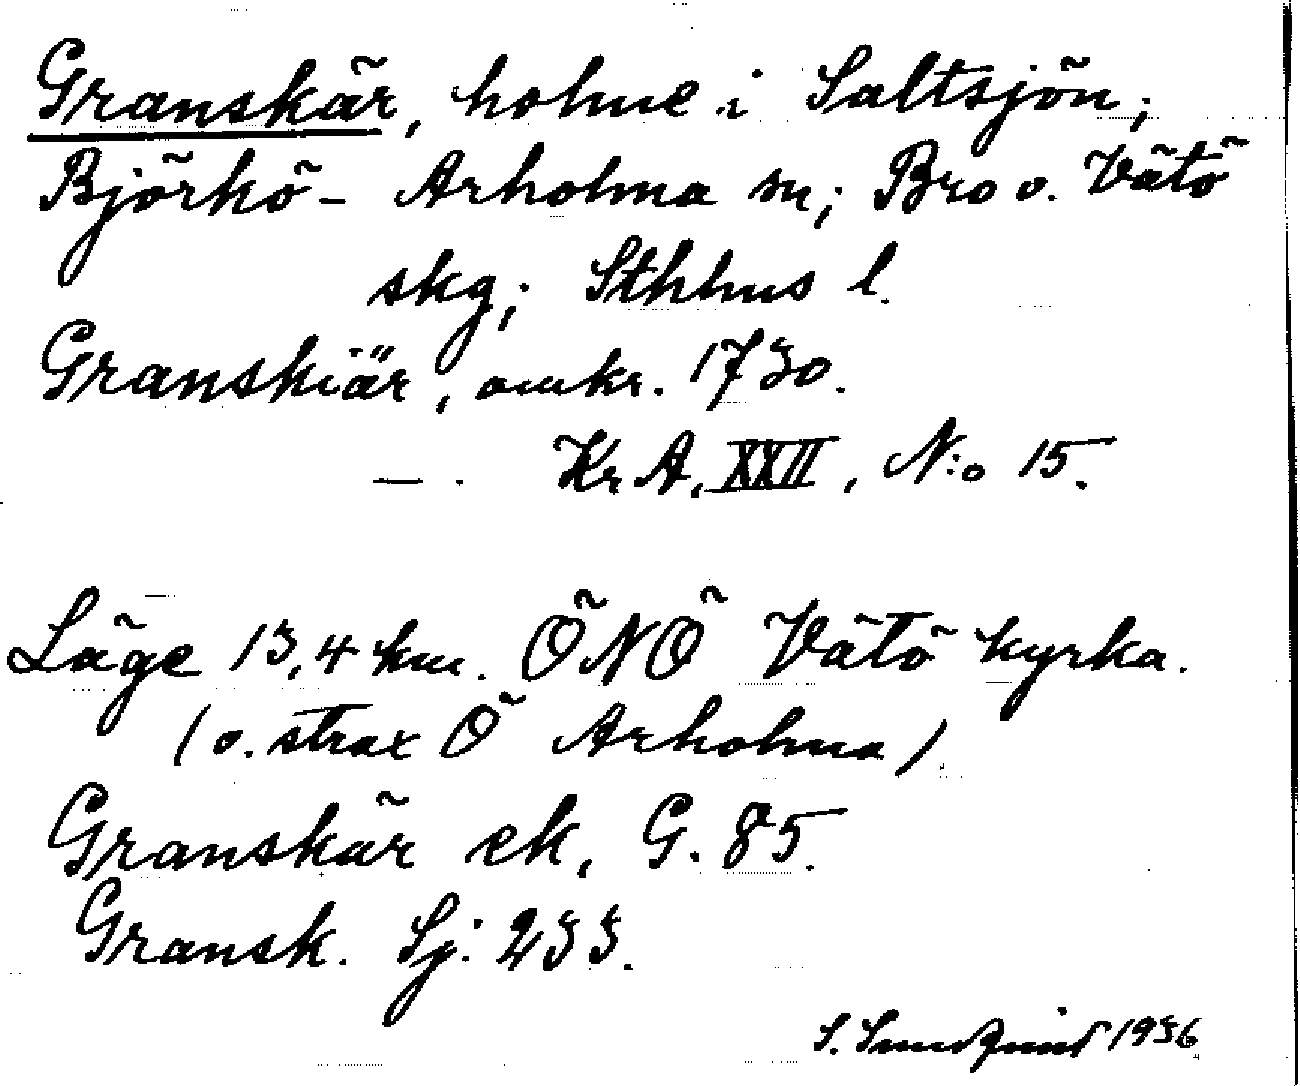 Granskär, holme i Saltsjön;
Björkö- Arholma sn; Bro o. Vätö
skg; Sthlms l.
Granskiär, omkr. 1730.
— . Kr. A. XXII, N:o 15.
Läge 13,4 km. ÖNÖ Vätö kyrka.
(o. strax Ö Arholma)
Granskär ek, G. 85.
Gransk. Sj: 233.
S. 1936